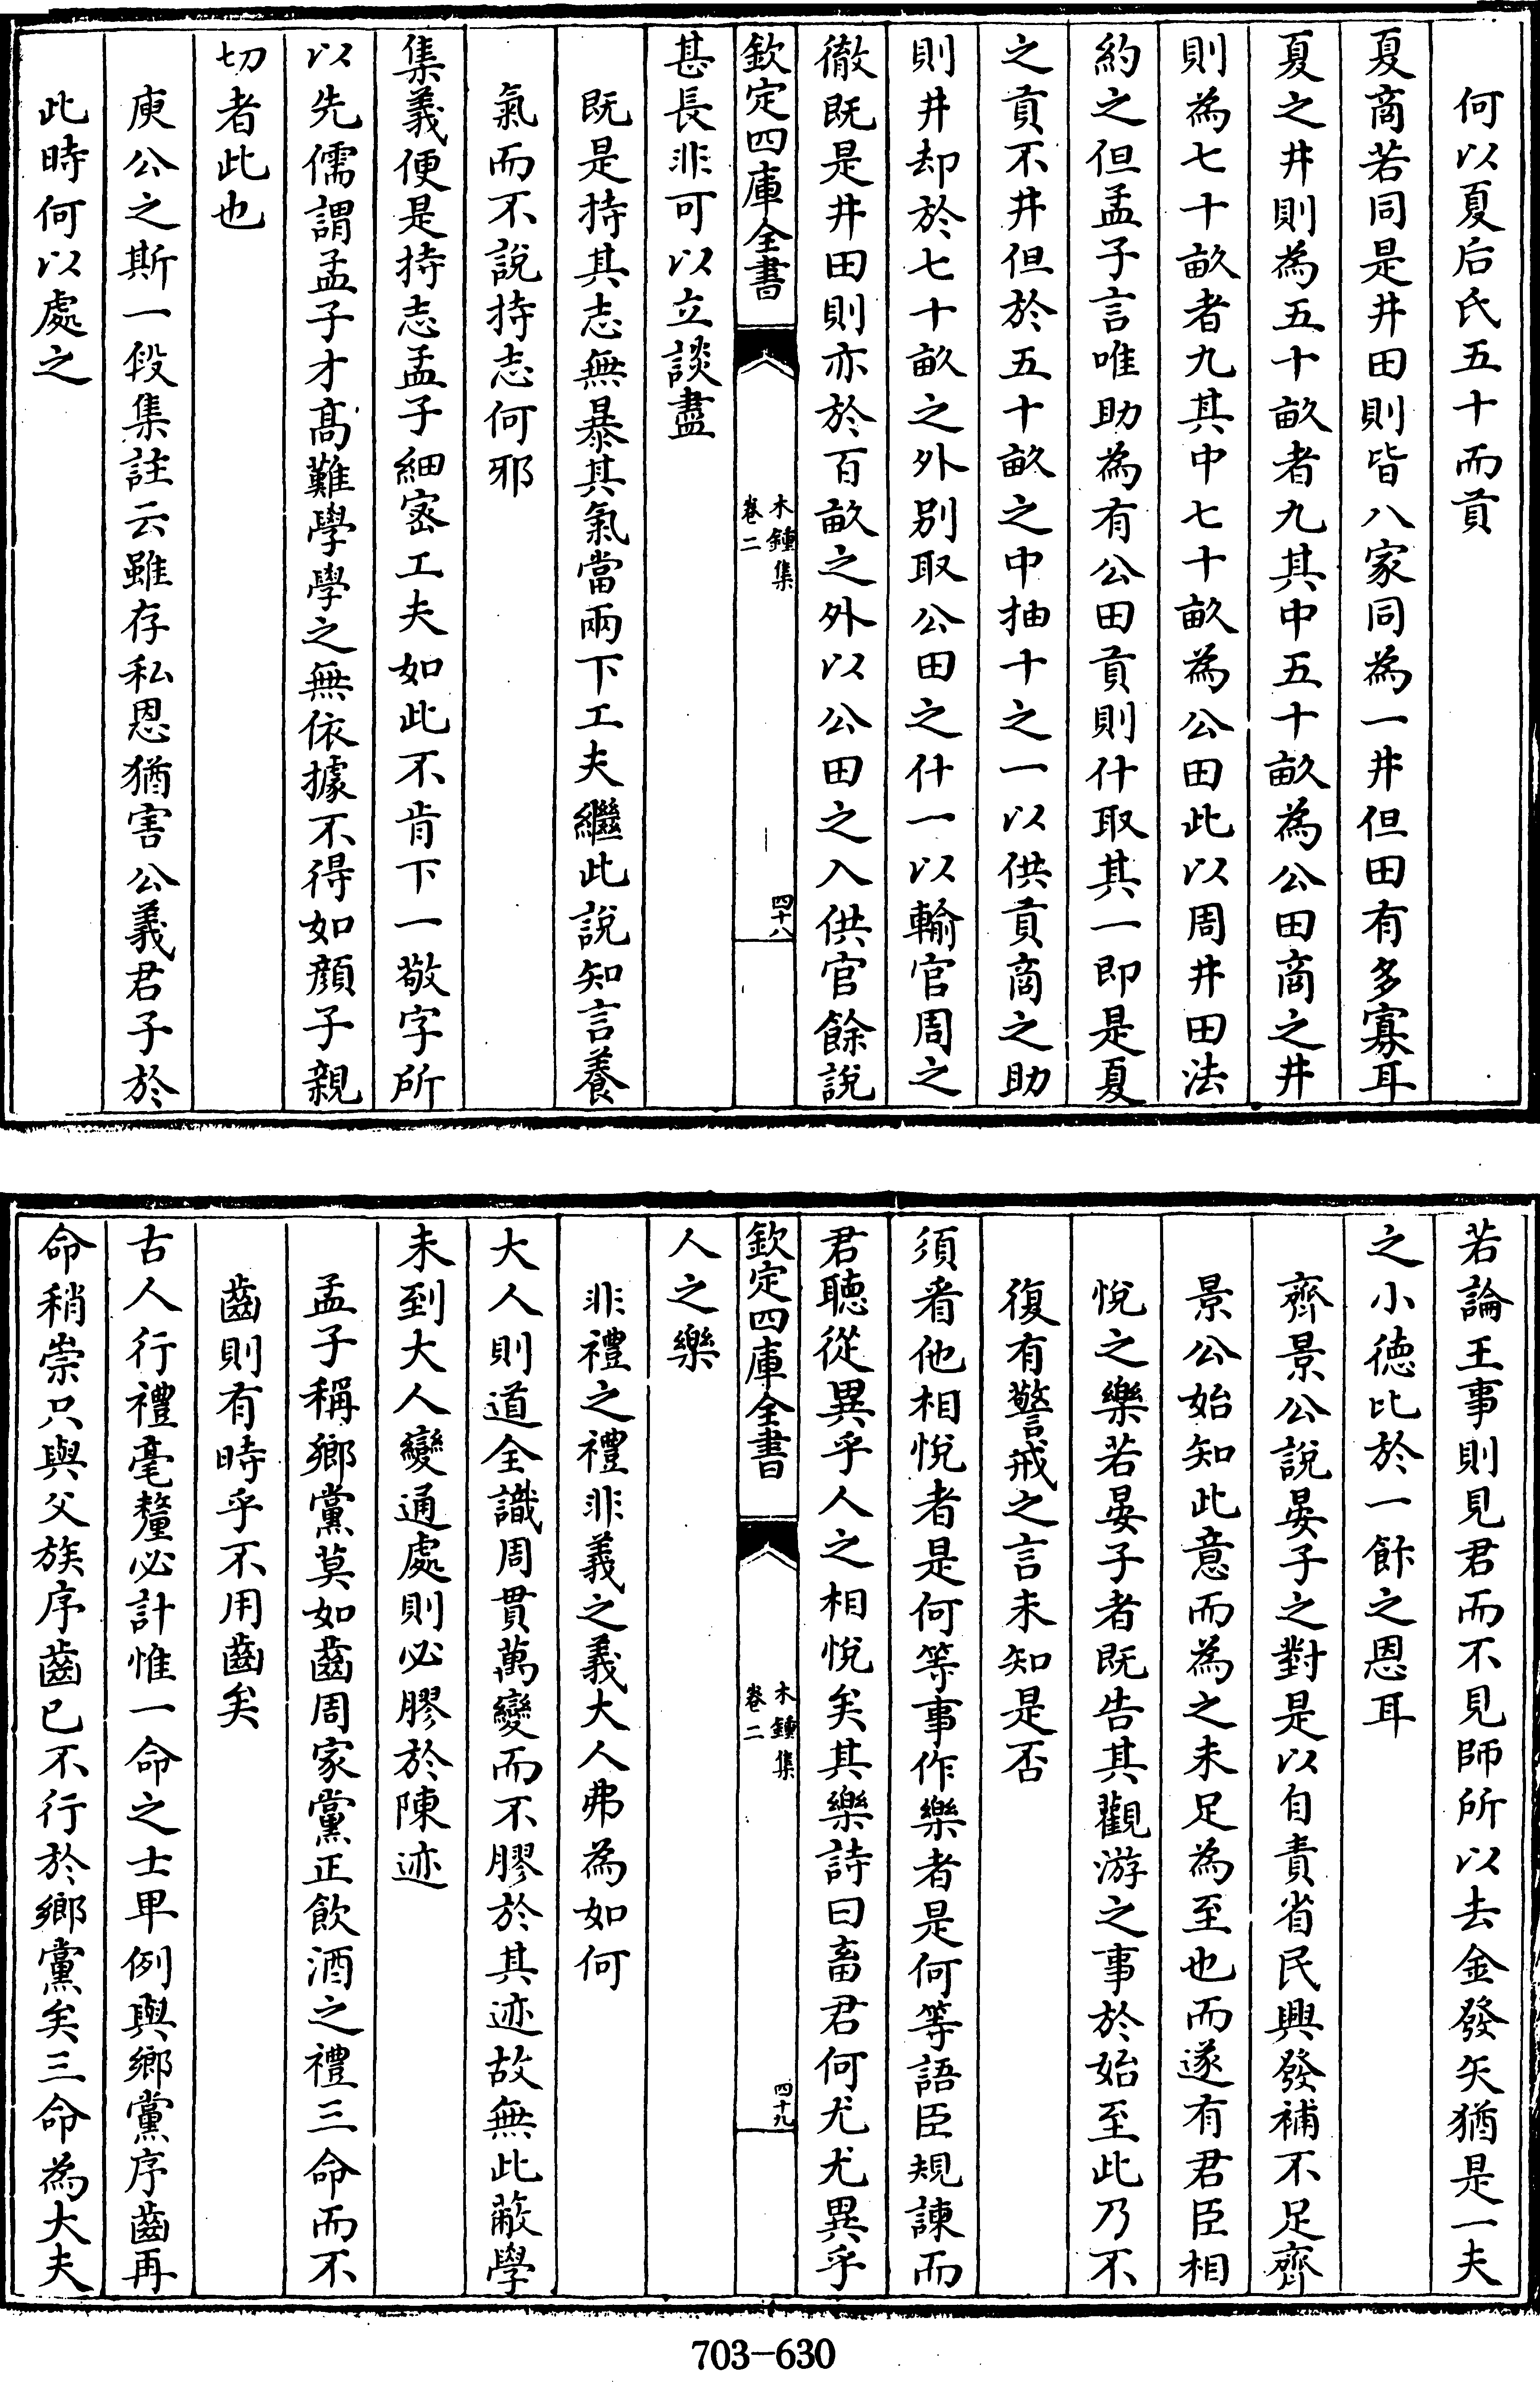 何以夏后氏五十而貢
夏商若同是井田則皆八家同為一井但田有多寡耳
夏之井則為五十畝者九其中五十畝為公田商之井
則為七十畝者九其中七十畝為公田此以周井田法
約之但孟子言唯助為有公田貢則什取其一即是夏
之貢不井但於五十畝之中抽十之一以供貢商之助
則井却於七十畝之外别取公田之什一以輸官周之
徹既是井田則亦於百畝之外以公田之入供官餘説
欽定四庫全書
木鍾集
卷二
四十八
甚長非可以立談盡
既是持其志無暴其氣當兩下工夫繼此説知言養
氣而不説持志何邪
集義便是持志孟子細宻工夫如此不肯下一敬字所
以先儒謂孟子才髙難學學之無依據不得如顔子親
切者此也
庾公之斯一段集註云雖存私恩猶害公義君子於
此時何以處之
若論王事則見君而不見師所以去金發矢猶是一夫
之小徳比於一飰之恩耳
齊景公説晏子之對是以自責省民興發補不足齊
景公始知此意而為之未足為至也而遂有君臣相
悦之樂若晏子者既告其觀游之事於始至此乃不
復有警戒之言未知是否
須看他相悦者是何等事作樂者是何等語臣規諫而
君聽從異乎人之相悦矣其樂詩曰畜君何尤尤異乎
欽定四庫全書
木鍾集
卷二
四十九
人之樂
非禮之禮非義之義大人弗為如何
大人則道全識周貫萬變而不膠於其迹故無此蔽學
未到大人變通處則必膠於陳迹
孟子稱鄉黨莫如齒周家黨正飲酒之禮三命而不
齒則有時乎不用齒矣
古人行禮毫釐必計惟一命之士卑例與鄉黨序齒再
命稍崇只與父族序齒已不行於鄉黨矣三命為大夫
703-630